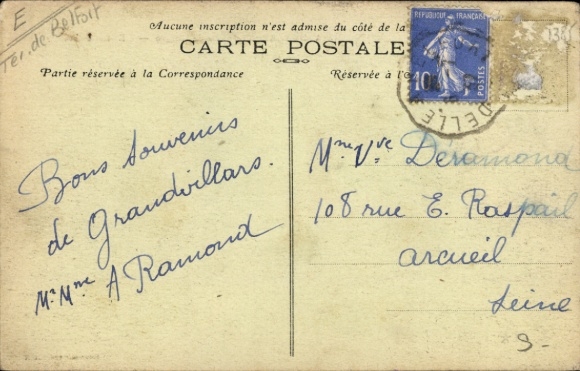 E
Tér. de Belfort
Aucune inscription n'est admise du côté de la
CARTE POSTALE
Partie réservée à la Correspondance
Réservée à l'A
RÉPUBLIQUE FRANÇAISE
10
POSTES
DELLE
138
Bons souvenirs
de Grandvillars.
Mr Mme A Ramond
Mme Vve Déramond
108 rue E. Raspail
arcueil
Seine